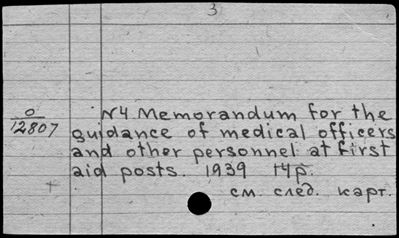 3
O
12807
N4 Memorandum for the
guidance of medical officers
and other personnel at first
aid posts. 1939 14р.
см. след. карт.